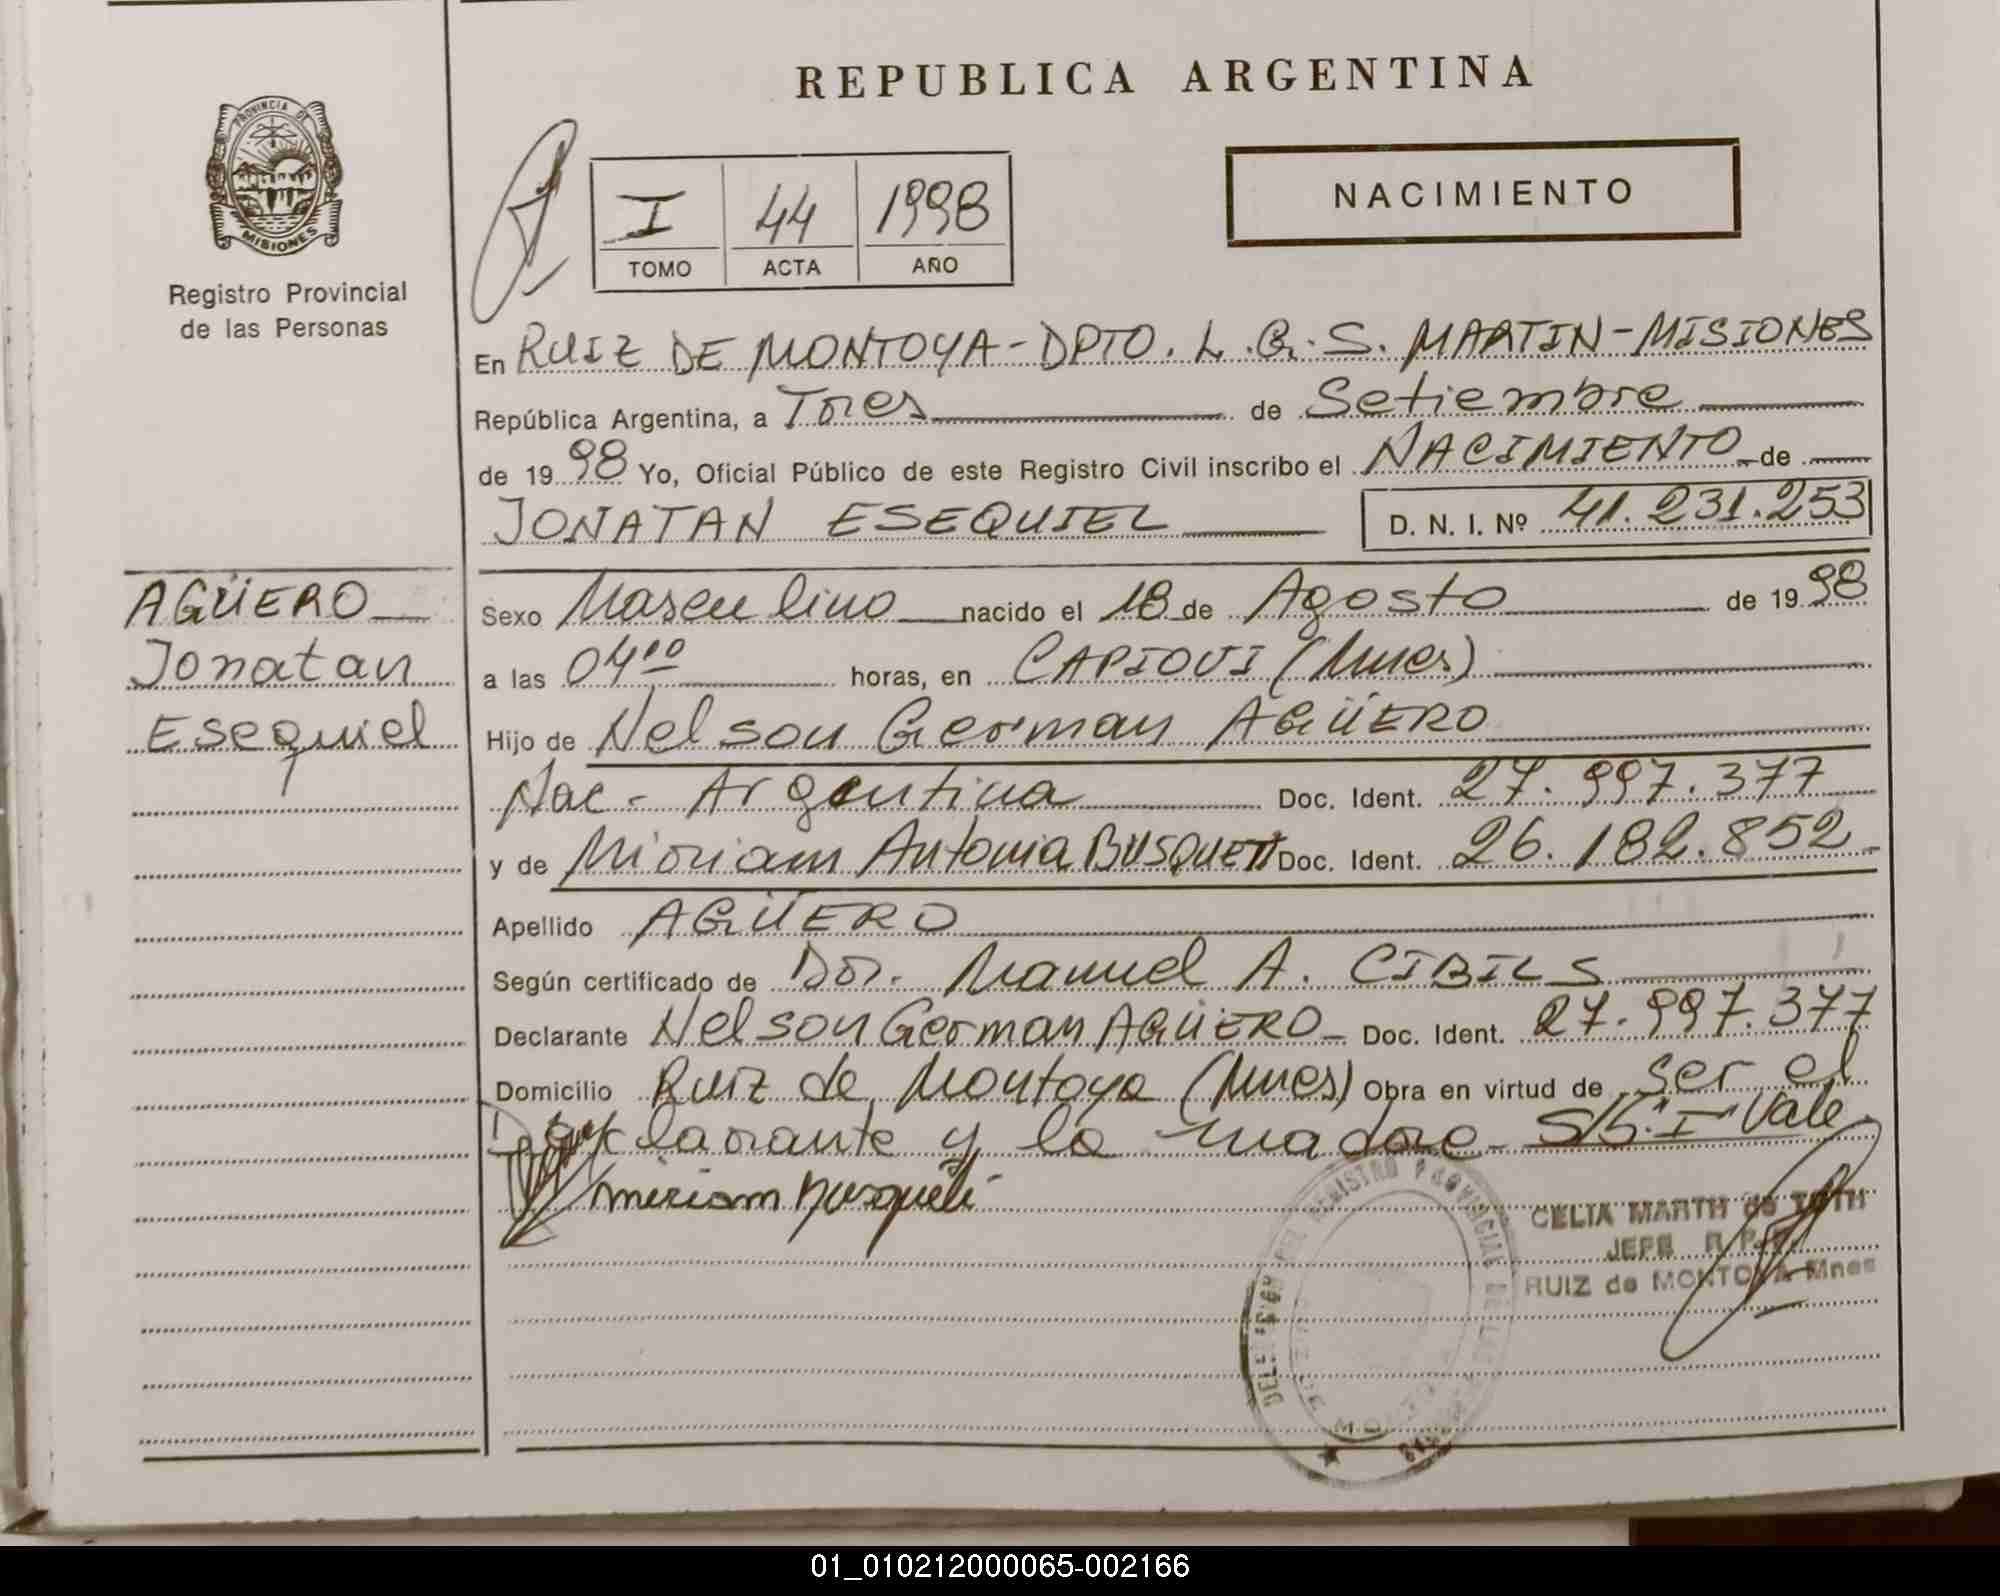 REPUBLICA ARGENTINA
PROVINCIA DE
MISIONES
Registro Provincial
de las Personas
I 44 1998
TOMO ACTA AÑO
NACIMIENTO
En RUIZ DE MONTOYA - DPTO. L. G. S. MARTIN - MISIONES
República Argentina, a Tres de Setiembre
de 19 98 Yo, Oficial Público de este Registro Civil inscribo el NACIMIENTO de
JONATAN ESEQUIEL D. N. I. Nº 41.231.253
AGÜERO
Jonatan
Esequiel
Sexo Masculino nacido el 18 de Agosto de 19 98
a las 04 00 horas, en CAPIOVI (Mnes)
Hijo de Nelson German AGÜERO
Nac - Argentina Doc. Ident. 27.997.377
y de Miriam Antonia BUSQUETTI Doc. Ident. 26.182.852
Apellido AGÜERO
Según certificado de Dr. Manuel A. CIBILS
Declarante Nelson German AGÜERO Doc. Ident. 27.997.377
Domicilio Ruiz de Montoya (Mnes) Obra en virtud de ser el
Declarante y la madre S/S. I Vale
Miriam Busqueti
CELIA MARTH de TOTH
JEFE R.P.
RUIZ de MONTOYA Mnes
REGISTRO PROVINCIAL DE LAS
01_010212000065-002166